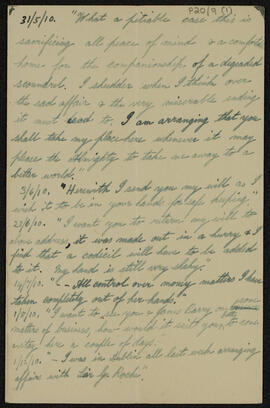 P20/9 (1)
31/5/10. "What a pitiable case this is
sacrificing all peace of mind & a comfortable
home for the companionship of a degraded
scoundrel. I shudder when I think over
the sad affair & the very miserable ending
it must lead to, I am arranging that you
shall take my place here whenever it may
please the Almighty to take me away to a
better world."
3/6/10. "Herewith I send you my will as I
wish it to be in your hands for safe keeping."
23/6/10. "I want you to return my will to
above address, it was made out in a hurry & I
find that a codicil will have to be added
to it. My hand is still very shaky."
14/7/10. "– All control over money matters I have
taken completely out of her hands."
"I want to see you & James Carry on
matter of business, how would it suit you, to come
stay here a couple of days.
1/12/10. "– I was in Dublin all last week arranging
affairs with Sir G. Roche".